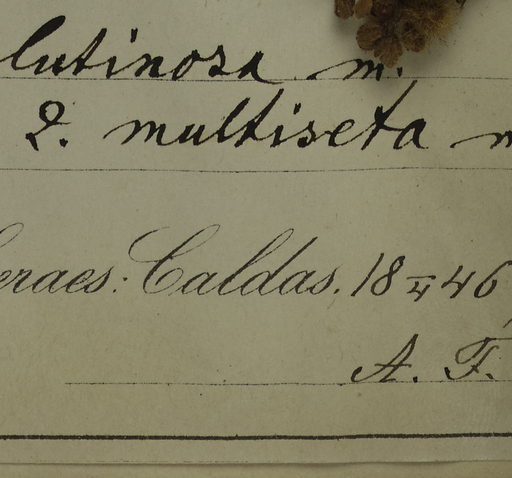 lutinosa m.
2. multiseta m
eraes: Caldas. 18 IV 46
A. F.